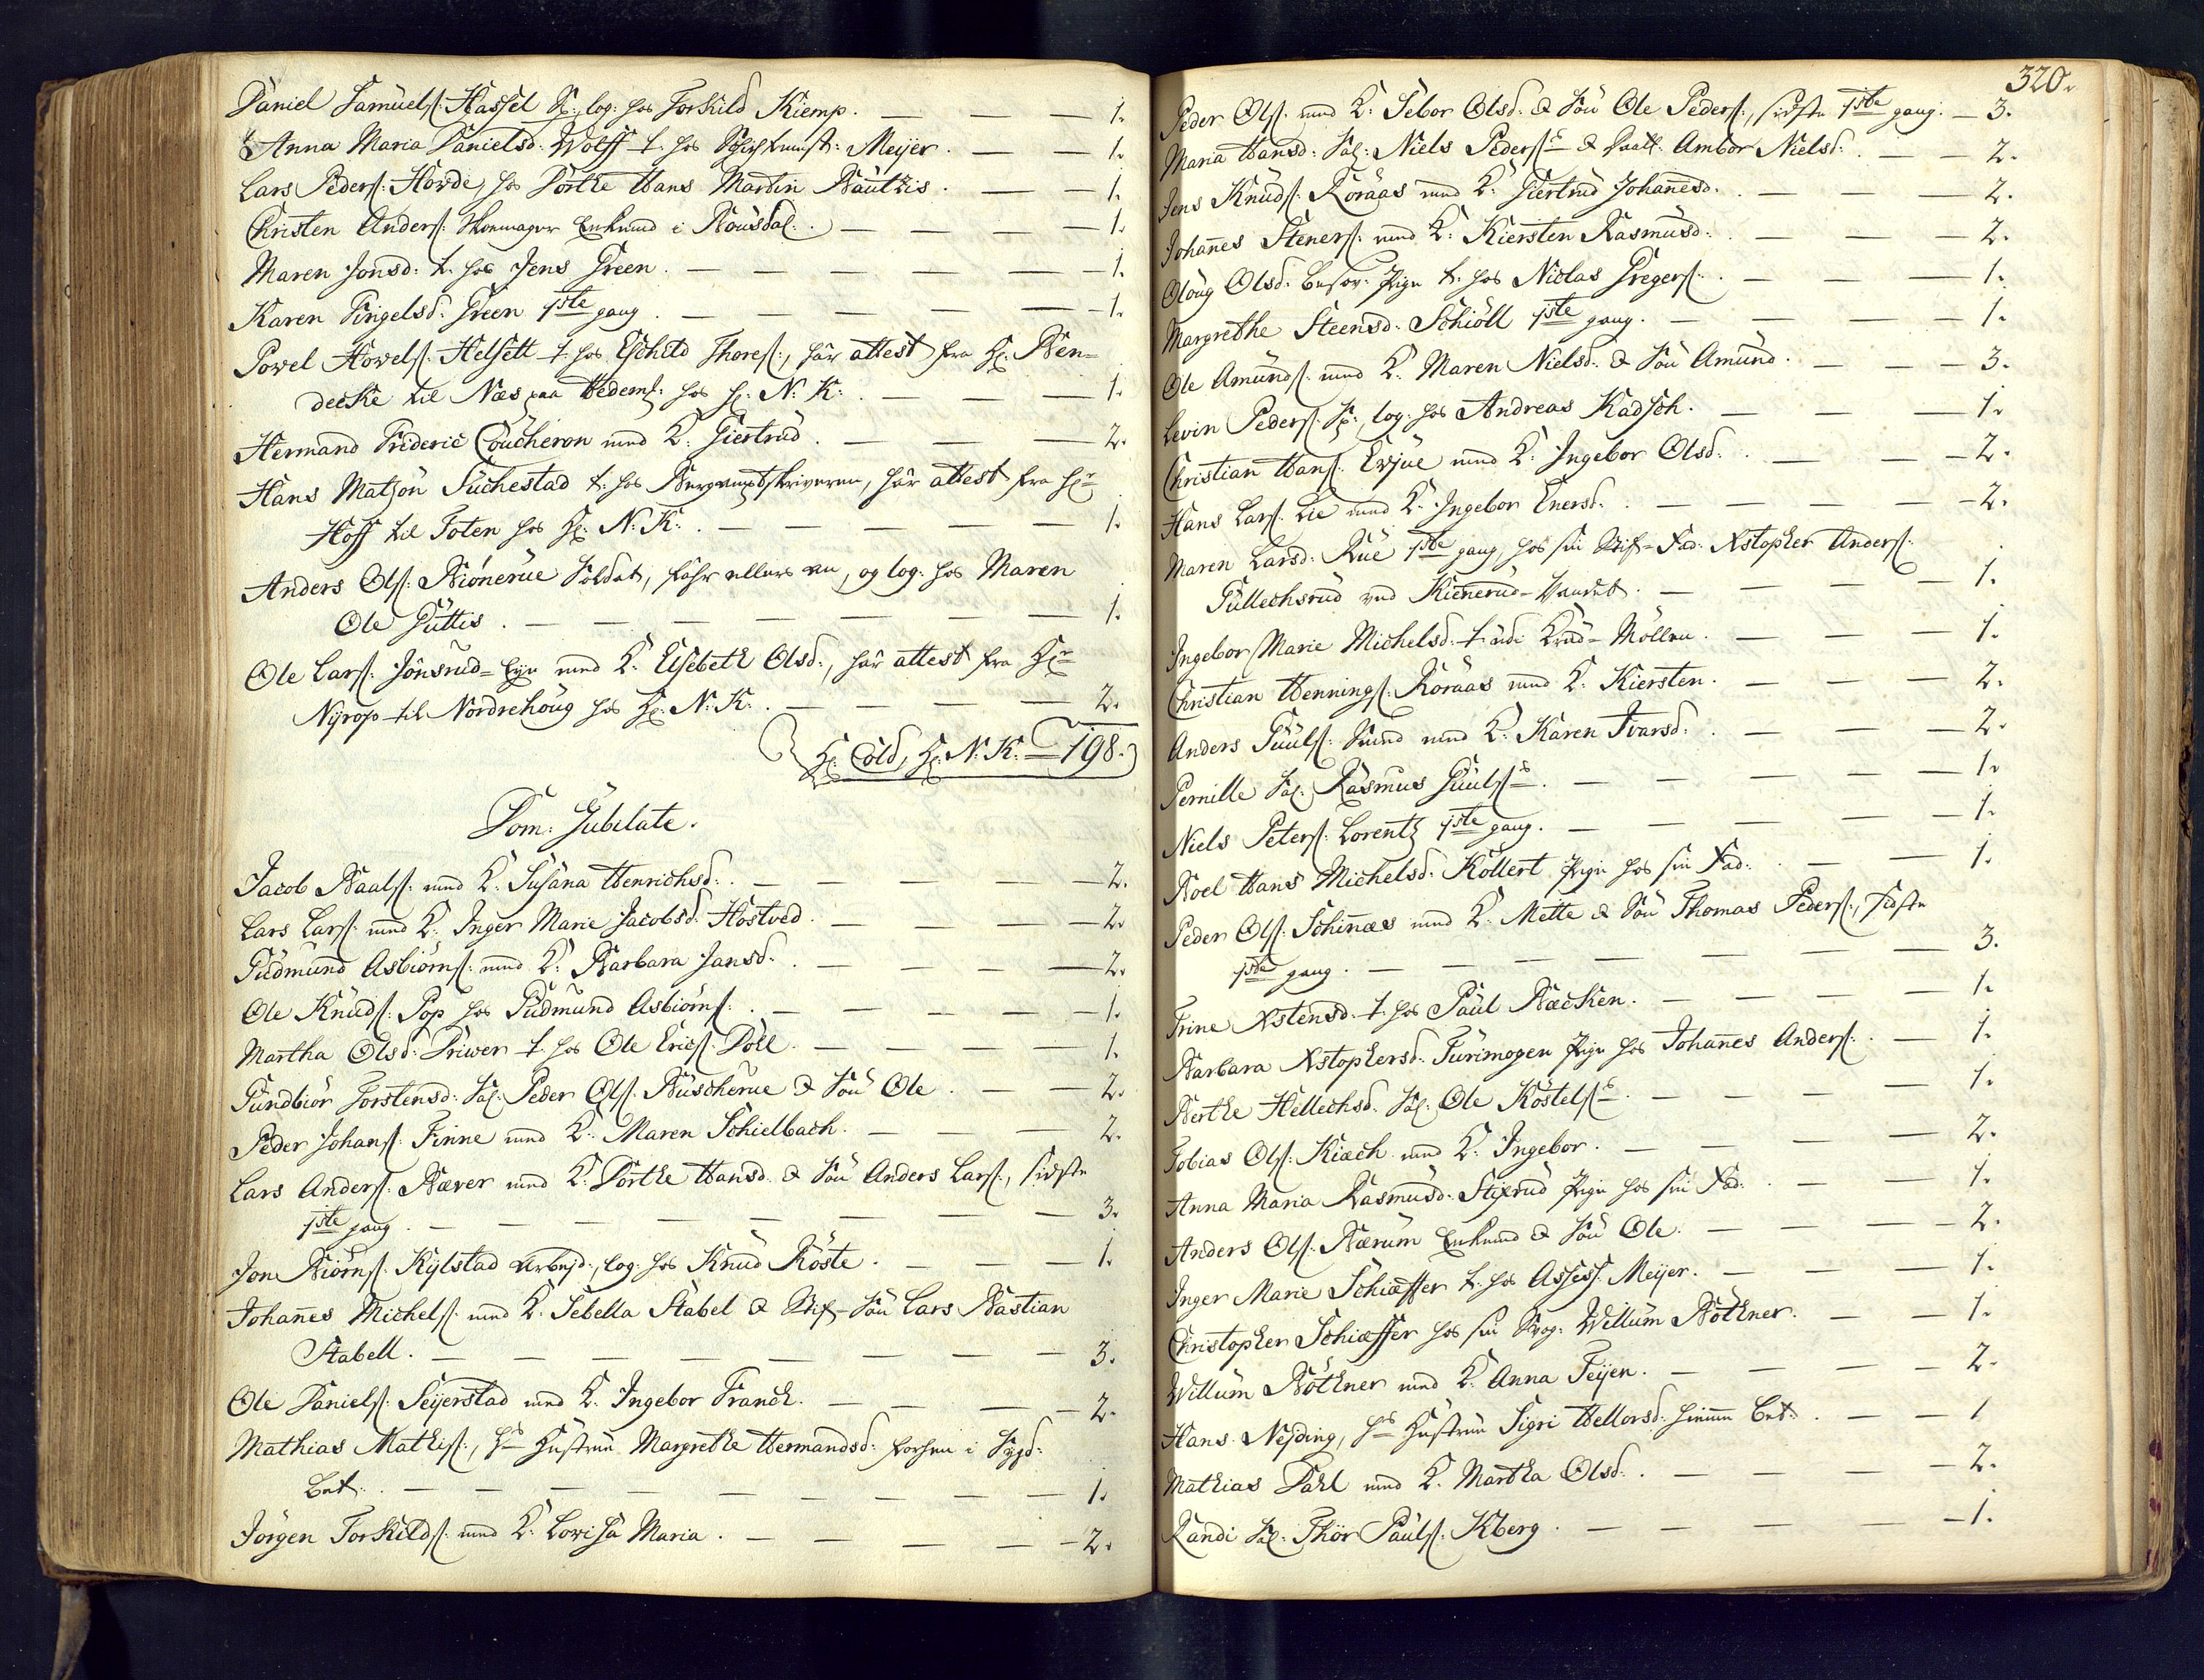 Daniel Samuels: Hassel S:, log: hos Torkild Kiemp. — — — 1.
Anna Maria Danielsd: Wolff t. hos Meijer. — — 1.
Lars Peders: Hovde, hos Dorthe Hans Martin Bautkis. — — 1.
Christen Anders: Skomager Enkemd i Rousdal. — — — 1.
Maren Jonsd: t. hos Jens Green. — — — — — 1.
Karen Gingelsd: Green 1ste gang. — — — — — 1.
Povel Hovels: Helsett t. hos Eschild Thores:, har attest fra Hr: Ben=
decke til Næs paa Hedem: hos Hr: N: K: — — — 1.
Hermand Frideric Coucheron med K: Giertrud. — — — 2.
Hans Matson Suchestad t. hos Bergamtskriveren, har attest fra Hr
Hoff til Toten hos Hr: N: K: — — — — — 1.
Anders Ols: Biönerue Soldat, og log: hos Maren
Ole Guttis. — — — — — — 1.
Ole Lars: Jönsrud=Eje med K: Elsebeth Olsd:, har attest fra Hr
Nyrop til Nordrehoug hos Hr: N: K: — — — — 2.
Hr: Cold, Hr: N: K: — 198.
Dom: Jubilate.
Jacob Baals: med K: Susana Henrichsd: — — — — 2.
Lars Lars: med K: Inger Marie Jacobsd: Hostved. — — — 2.
Gudmund Asbiörns: med K: Barbara Jansd: — — — — 2.
Ole Knuds: Pop hos Gudmund Asbiörns: — — — — 1.
Martha Olsd: Driwer t. hos Ole Erics: Doll. — — — 1.
Gundbiör Torstensd: Sal: Peder Ols: Buscherue & Sön Ole. — — 2.
Peder Johans: Finne med K: Maren Schielbach. — — — 2.
Lars Anders: Bæver med K: Dorthe Hansd: & Sön Anders Lars:, sidste
1ste gang. — — — — — — — 3.
Jon Biörns: Kylstad Arbejd:, log: hos Knud Köste. — — — 1.
Johanes Michels: med K: Sebella Stabel & Stif-Sön Lars Bastian
Stabell. — — — — — — — 3.
Ole Daniels: Seyerstad med K: Ingebor Franck. — — — 2.
Mathias Mathis:, hs Hustrue Margrethe Hermandsd: forhen i Sygd:
Bet: — — — — — — — 1.
Jörgen Torkilds: med K: Lovisa Maria. — — — — 2.
320.
Peder Ols: med K: Sebor Olsd: & Sön Ole Peders:, sidste 1ste gang. — 3.
Maria Hansd: Sal: Niels Peders & Datt: Ambor Nielsd: — — 2.
Jens Knuds: Koraas med K: Giertrud Johanesd: — — — 2.
Johanes Steners: med K: Kiersten Rasmusd: — — — 2.
Oloug Olsd: Besov: Pige t. hos Niclas Gregers: — — — 1.
Margrethe Steensd: Schiöll 1ste gang. — — — — 1.
Ole Amunds: med K: Maren Nielsd: & Sön Amund. — — — 3.
Levin Peders: S:, log: hos Andreas Kadsch. — — — — 1.
Christian Hans: Evjue med K: Ingebor Olsd: — — — 2.
Hans Lars: Lie med K: Ingebor Enersd: — — — — 2.
Maren Larsd: Rue 1ste gang, hos sin Stif=Fad: Xstopher Anders:
Gullechsrud ved Kienerud-Vandet. — — — — 1.
Ingebor Marie Michelsd: t. udi Krud=Möllen. — — — 1.
Christian Hennings: Koraas med K: Kiersten. — — — 2.
Anders Guuls: Smed med K: Karen Ivarsd: — — — 2.
Pernille Sal: Rasmus Guuls. — — — — — 1.
Niels Peters: Lorentz 1ste gang. — — — — — 1.
Boel Hans Michelsd: Kollert Pige hos sin Fad: — — — 1.
Peder Ols: Schinæs med K: Mette & Sön Thomas Peders:, sidste
1ste gang. — — — — — — — 3.
Trine Xstensd: t. hos Paul Bæcken. — — — — 1.
Barbara Xstophersd: Furimogen Pige hos Johanes Anders: — 1.
Berthe Hellechsd: Sal: Ole Köstels. — — — — 1.
Tobias Ols: Kiæch med K: Ingebor. — — — — 2.
Anna Maria Rasmusd: Stixrud Pige hos sin Fad: — — — 1.
Anders Ols: Bærum Enkemd & Sön Ole. — — — — 2.
Inger Marie Schiæffer t. hos Assess: Meijer. — — — 1.
Christopher Schiæffer hos sin Svog: Willum Böthner. — — 1.
Willum Böthner med K: Anna Feijen. — — — — 2.
Hans Nejding, hs Hustrue Sigri Hellorsd: hieme Bet: — — 1
Mathias Dahl med K: Martha Olsd: — — — — 2.
Randi Sal: Thör Pauls: Kberg. — — — — — 1.